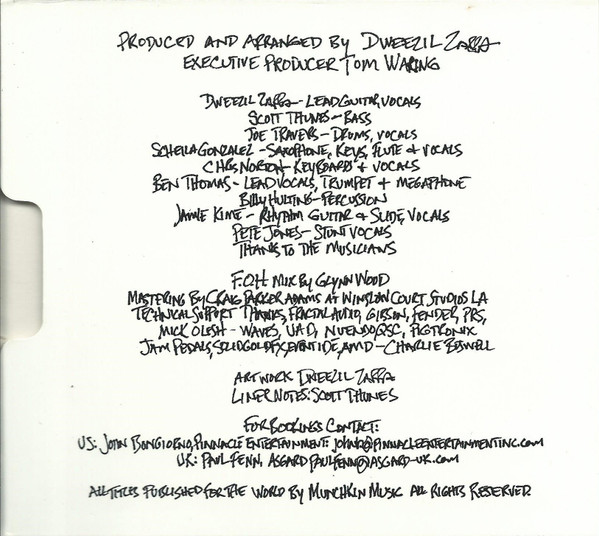 PRODUCED AND ARRANGED BY DWEEZIL ZAPPA
EXECUTIVE PRODUCER TOM WARING
DWEEZIL ZAPPA - LEAD GUITAR, VOCALS
SCOTT THUNES - BASS
JOE TRAVERS - DRUMS, VOCALS
SCHEILA GONZALEZ - SAXOPHONE, KEYS, FLUTE & VOCALS
CHRIS NORTON - KEYBOARDS & VOCALS
BEN THOMAS - LEAD VOCALS, TRUMPET + MEGAPHONE
BILLY HULTING - PERCUSSION
JAMIE KIME - RHYTHM GUITAR & SLIDE, VOCALS
PETE JONES - STUNT VOCALS
THANKS TO THE MUSICIANS
F.O.H MIX BY GLYNN WOOD
MASTERING BY CRAIG PARKER ADAMS AT WINSLOW COURT STUDIOS LA
TECHNICAL SUPPORT THANKS, FRACTAL AUDIO, GIBSON, FENDER, PRS,
MICK OLESH - WAVES, UAD, NUENDO, QSC, PIGTRONIX
JAM PEDALS, SOLIDGOLDFX, EVENTIDE, AMD - CHARLIE BOSWELL
ARTWORK DWEEZIL ZAPPA
LINER NOTES: SCOTT THUNES
FOR BOOKINGS CONTACT:
US: JOHN BONGIORNO, PINNACLE ENTERTAINMENT: JOHN@PINNACLEENTERTAINMENTINC.COM
UK: PAUL FENN, ASGARD PAULFENN@ASGARD-UK.COM
ALL TITLES PUBLISHED FOR THE WORLD BY MUNCHKIN MUSIC ALL RIGHTS RESERVED